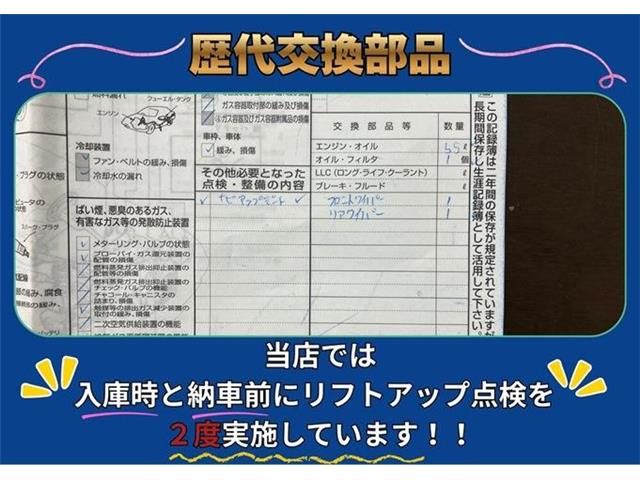 歴代交換部品
燃料漏れ
フューエル・タンク
エンジン
冷却装置
ファン・ベルトの緩み、損傷
冷却水の漏れ
ばい煙、悪臭のあるガス、
有害なガス等の発散防止装置
メターリング・バルブの状態
ブローバイ・ガス還元装置の
配管の損傷
燃料蒸発ガス排出抑止装置の
配管等の損傷
燃料蒸発ガス排出抑止装置の
チェック・バルブの機能
チャコール・キャニスタの
詰まり、損傷
触媒等の排出ガス減少装置の
取付の緩み、損傷
二次空気供給装置の機能
ガス容器取付部の緩み及び損傷
ガス容器及びガス容器附属品の損傷
車枠、車体
緩み、損傷
その他必要となった
点検・整備の内容
交換部品等 数量
エンジン・オイル 5.5 ℓ
オイル・フィルタ 1 個
LLC（ロング・ライフ・クーラント） ℓ
ブレーキ・フルード ℓ
フロントワイパー 1
リアワイパー 1
この記録簿は二年間の保存が規定されていますが
長期間保存し生涯記録簿として活用して下さい。
当店では
入庫時と納車前にリフトアップ点検を
２度実施しています！！